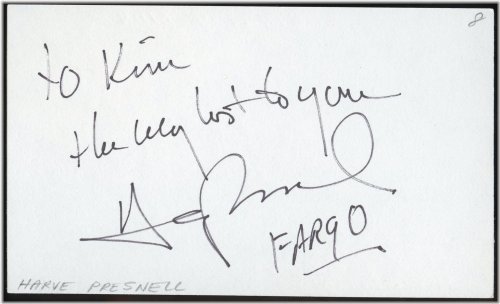 8
to Kim
the very best to you
Harve Presnell
FARGO
HARVE PRESNELL